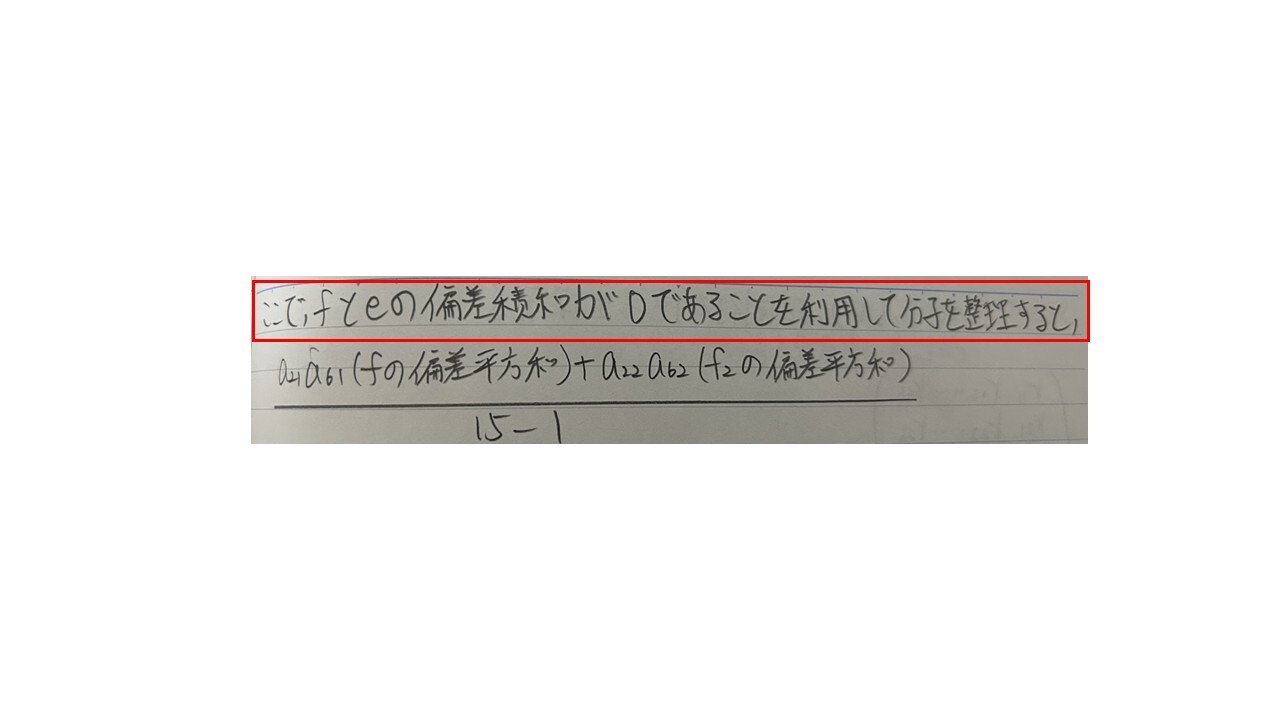 ここで,fとeの偏差積和が0であることを利用して分子を整理すると,
a21a61(fの偏差平方和)+a22a62(f2の偏差平方和)
15-1